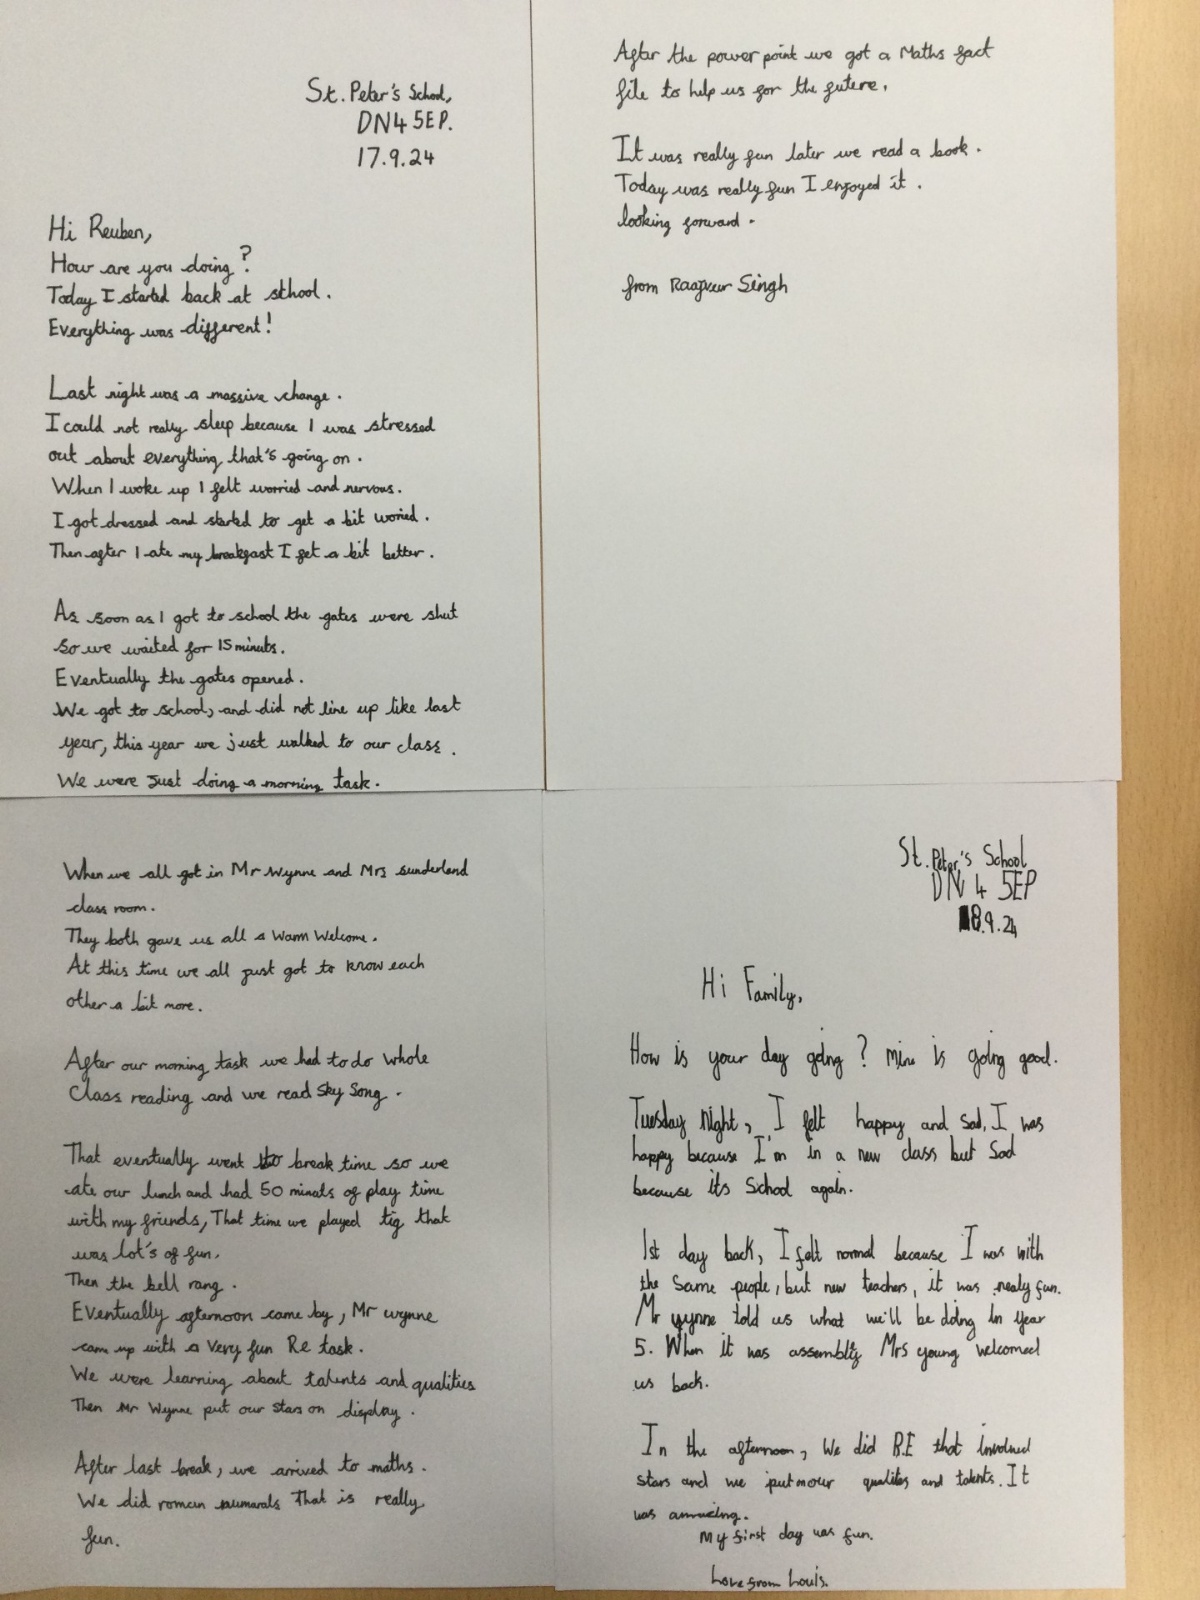 St. Peter's School,
DN4 5EP.
17.9.24
Hi Reuben,
How are you doing?
Today I started back at school.
Everything was different!
Last night was a massive change.
I could not really sleep because I was stressed
out about everything that's going on.
When I woke up I felt worried and nervous.
I got dressed and started to get a bit woried.
Then after I ate my breakfast I fet a bit better.
As soon as I got to school the gates were shut
so we waited for 15 minuts.
Eventually the gates opened.
We got to school, and did not line up like last
year, this year we just walked to our class.
We were just doing a morning task.
When we all got in Mr Wynne and Mrs sunderland
class room.
They both gave us all a warm welcome.
At this time we all just got to know each
other a bit more.
After our morning task we had to do whole
Class reading and we read Sky Song.
That eventually went to break time so we
ate our lunch and had 50 minats of play time
with my friends, That time we played tig that
was lot's of fun.
Then the bell rang.
Eventually afternoon came by, Mr wynne
cam up with a very fun Re task.
We were learning about talents and qualities
Then Mr Wynne put our stars on display.
After last break, we arrived to maths.
We did roman numarals That is really
fun.
After the power point we got a Maths fact
file to help us for the futere.
It was really fun later we read a book.
Today was really fun I enjoyed it.
looking forward.
from Raajveer Singh
St. Peter's School
DN4 5EP
18.9.24
Hi Family,
How is your day going? Mine is going good.
Tuesday Night, I felt happy and sad, I was
happy because I'm in a new class but sad
because its School again.
1st day back, I felt normal because I was with
the same people, but new teachers, it was realy fun.
Mr wynne told us what we'll be doing in year
5. When it was assembly Mrs young welcomed
us back.
In the afternoon, We did R.E that involved
stars and we put our qualites and talents. It
was amazing.
My first day was fun.
Love from Louis.